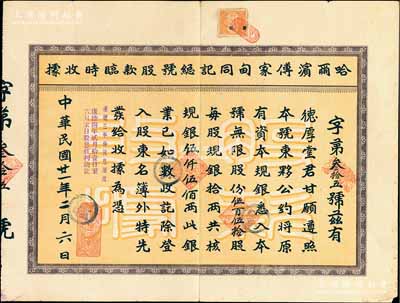 哈爾濱傅家甸同記總號股款臨時收據
字第叁拾五號茲有
德厚堂君甘願遵照
本號東夥公約將原
有資本規銀悉入本
號無限股份伍百伍拾股
每股規銀拾兩共核
規銀伍仟伍百兩此銀
業已如數收訖除登
入股東名簿外特先
發給收據為憑
中華民國廿一年二月六日
字第叁拾五號